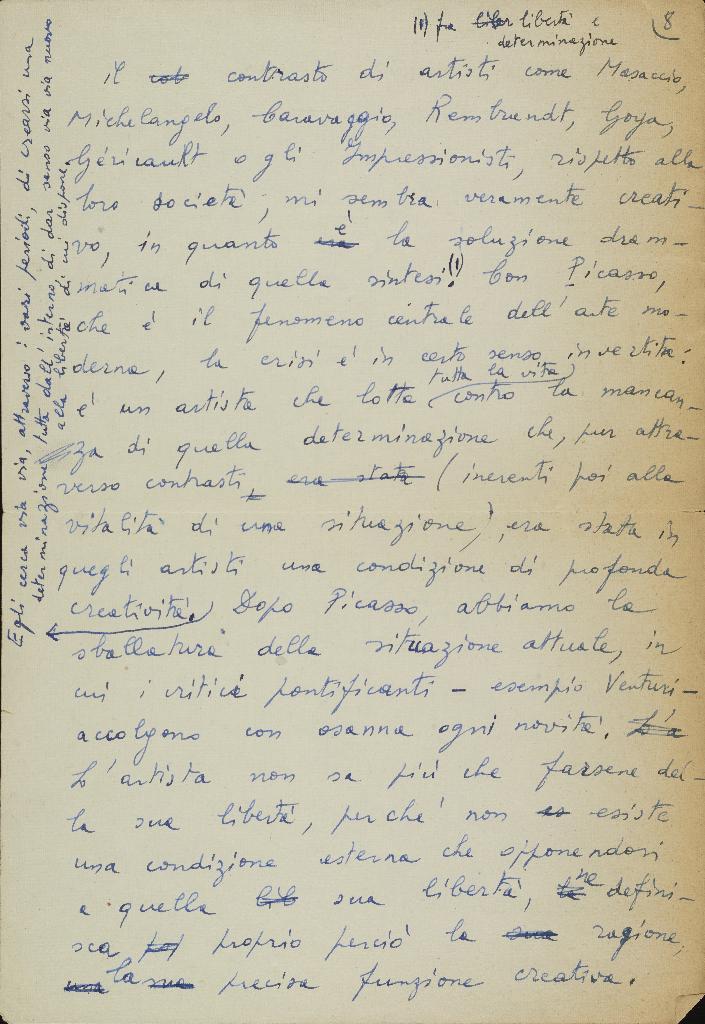 (1) fra liber libertà e 8
determinazione
il cot contrasto di artisti come Masaccio,
Michelangelo, Caravaggio, Rembrandt, Goya,
Géricault o gli Impressionisti, rispetto alla
loro società, mi sembra veramente creati-
vo, in quanto era è la soluzione dram-
matica di quella sintesi. (1) Con Picasso,
che è il fenomeno centrale dell'arte mo-
derna, la crisi è in certo senso invertita:
è un artista che lotta tutta la vita contro la mancan-
za di quella determinazione che, pur attra-
verso contrasti, era stata (inerenti poi alla
vitalità di una situazione), era stata in
quegli artisti una condizione di profonda
creatività. Dopo Picasso, abbiamo la
sballatura della situazione attuale, in
cui i critici pontificanti - esempio Venturi -
accolgono con osanna ogni novità. L'a
L'artista non sa più che farsene del-
la sua libertà, perché non es esiste
una condizione esterna che opponendosi
a quella lib sua libertà, la ne defini-
sca proprio perciò la sua ragione,
una la sua precisa funzione creativa.
Egli cerca via via, attraverso i vari periodi, di crearsi una
determinazione tutta dall'interno, di dar senso via via nuovo
alla libertà di cui dispone.